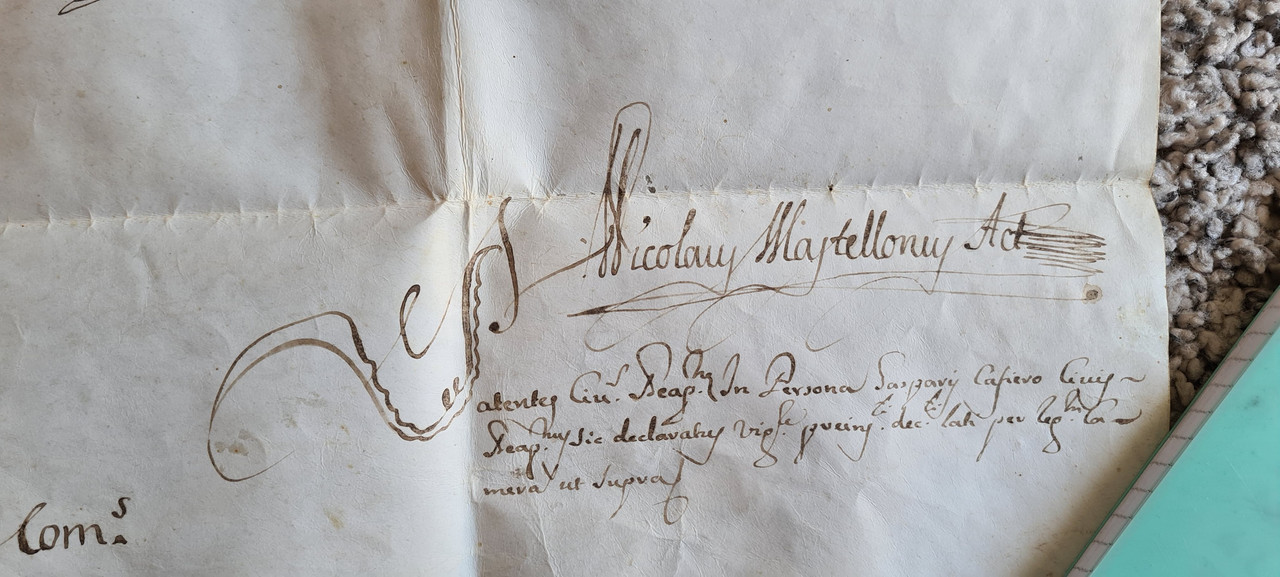 Nicolaus Mastellonus Act
Patentes Civ.s Neap.nis In Persona Gasparis Cafiero Civis
Neap.nus sic declaratus vig.e preins.ti dec.ti lati per Reg.m Ca-
mera ut supra
Com.s